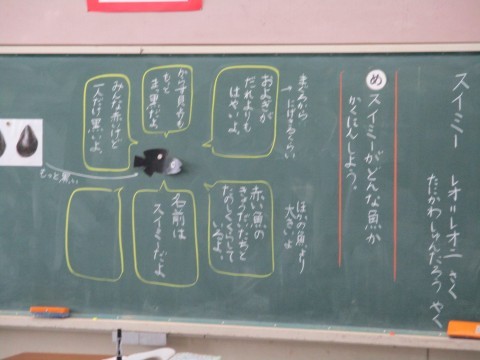 スイミー　レオ＝レオニ　さく
たにかわしゅんたろう　やく
め スイミーがどんな魚か
かくにんしよう。
まぐろから
にげるくらい
ほかの魚より
大きいよ
およぎが
だれよりも
はやいよ。
からす貝より
もっと
まっ黒だよ
みんな赤いけど
一人だけ黒いよ。
赤い魚の
きょうだいたちと
たのしくくらして
いるよ。
名前は
スイミーだよ
もっと黒い